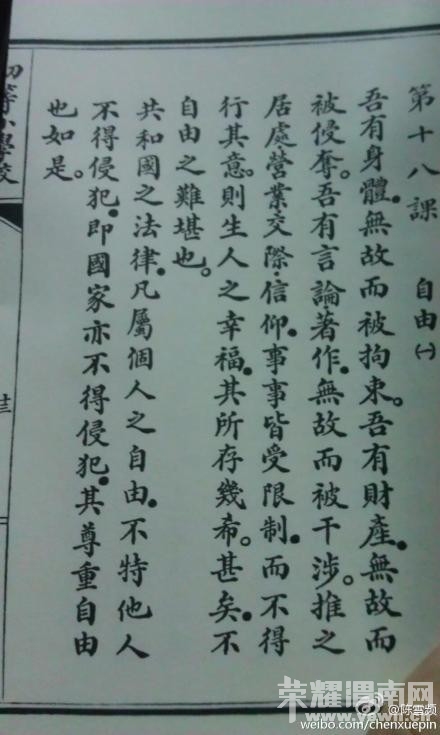 第十八課　自由㈠
吾有身體。無故而被拘束。吾有財產。無故而
被侵奪。吾有言論·著作。無故而被干涉。推之
居處營業交際·信仰。事事皆受限制。而不得
行其意。則生人之幸福。其所存幾希。甚矣。不
自由之難堪也。
共和國之法律。凡屬個人之自由。不特他人
不得侵犯。即國家亦不得侵犯。其尊重自由
也如是。
初等小學校
荣耀渭南网
www.yewn.cn
@陈雪频
weibo.com/chenxuepin